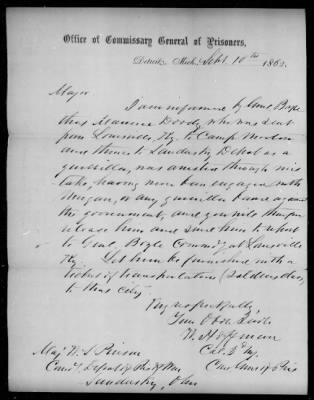 Office of Commissary General of Prisoners,
Detroit, Mich. Sept. 10th 1862.
Major
I am informed by Genl Boyle
that Maurice Doody, who was sent
from Louisville Ky to Camp Morton
and thence to Sandusky Depot as a
guerrilla, was arrested through mis
take, having never been engaged with
Morgan, or any guerrilla band against
the government, and you will therefore
release him and send him to report
to Genl Boyle Commdg at Louisville
Ky. Let him be furnished with a
ticket of transportation (Soldiers)
to that City.
Very respectfully
Your Obdt Servt
W. Hoffman
Col. 3d Infy.
Com. Genl of Pris
Maj W. S. Pierson
Comdg Depot of Pris of War
Sandusky, Ohio